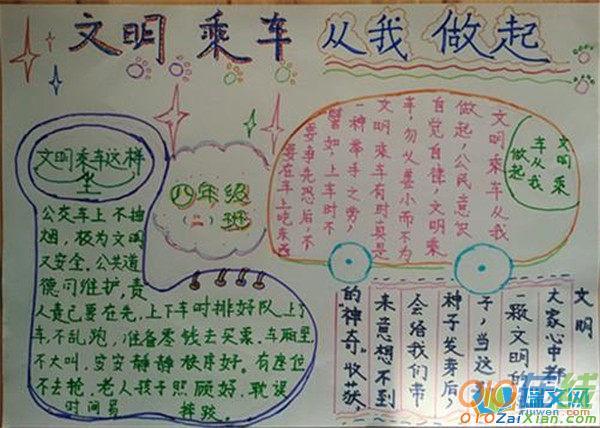 文明乘车 从我做起
文明乘车这样
公交车上不抽
烟,极为文明
又安全.公共道
德问维护,责
人责己要在先,上下车时排好队.上了
车,不乱跑,准备零钱去买票,车厢里
不大叫,安安静静秩序好。有座位
不去抢,老人孩子照顾好,耽误
时间易 摔跤.
八年级
班
文明乘
车从我
做起
文明乘车从我
做起,公民意识
自觉自律,文明乘
车,勿以善小而不为
文明乘车有时真是
一种举手之劳,
譬如,上车时不
要争先恐后,不
要在车上吃东西
文明
大家心中都
一颗文明的
子,当这
种子发芽后,
会给我们带
来意想不到
的"神奇"收获,
010在线
010ZaiXian.com
瑞文网
ruiwen.com